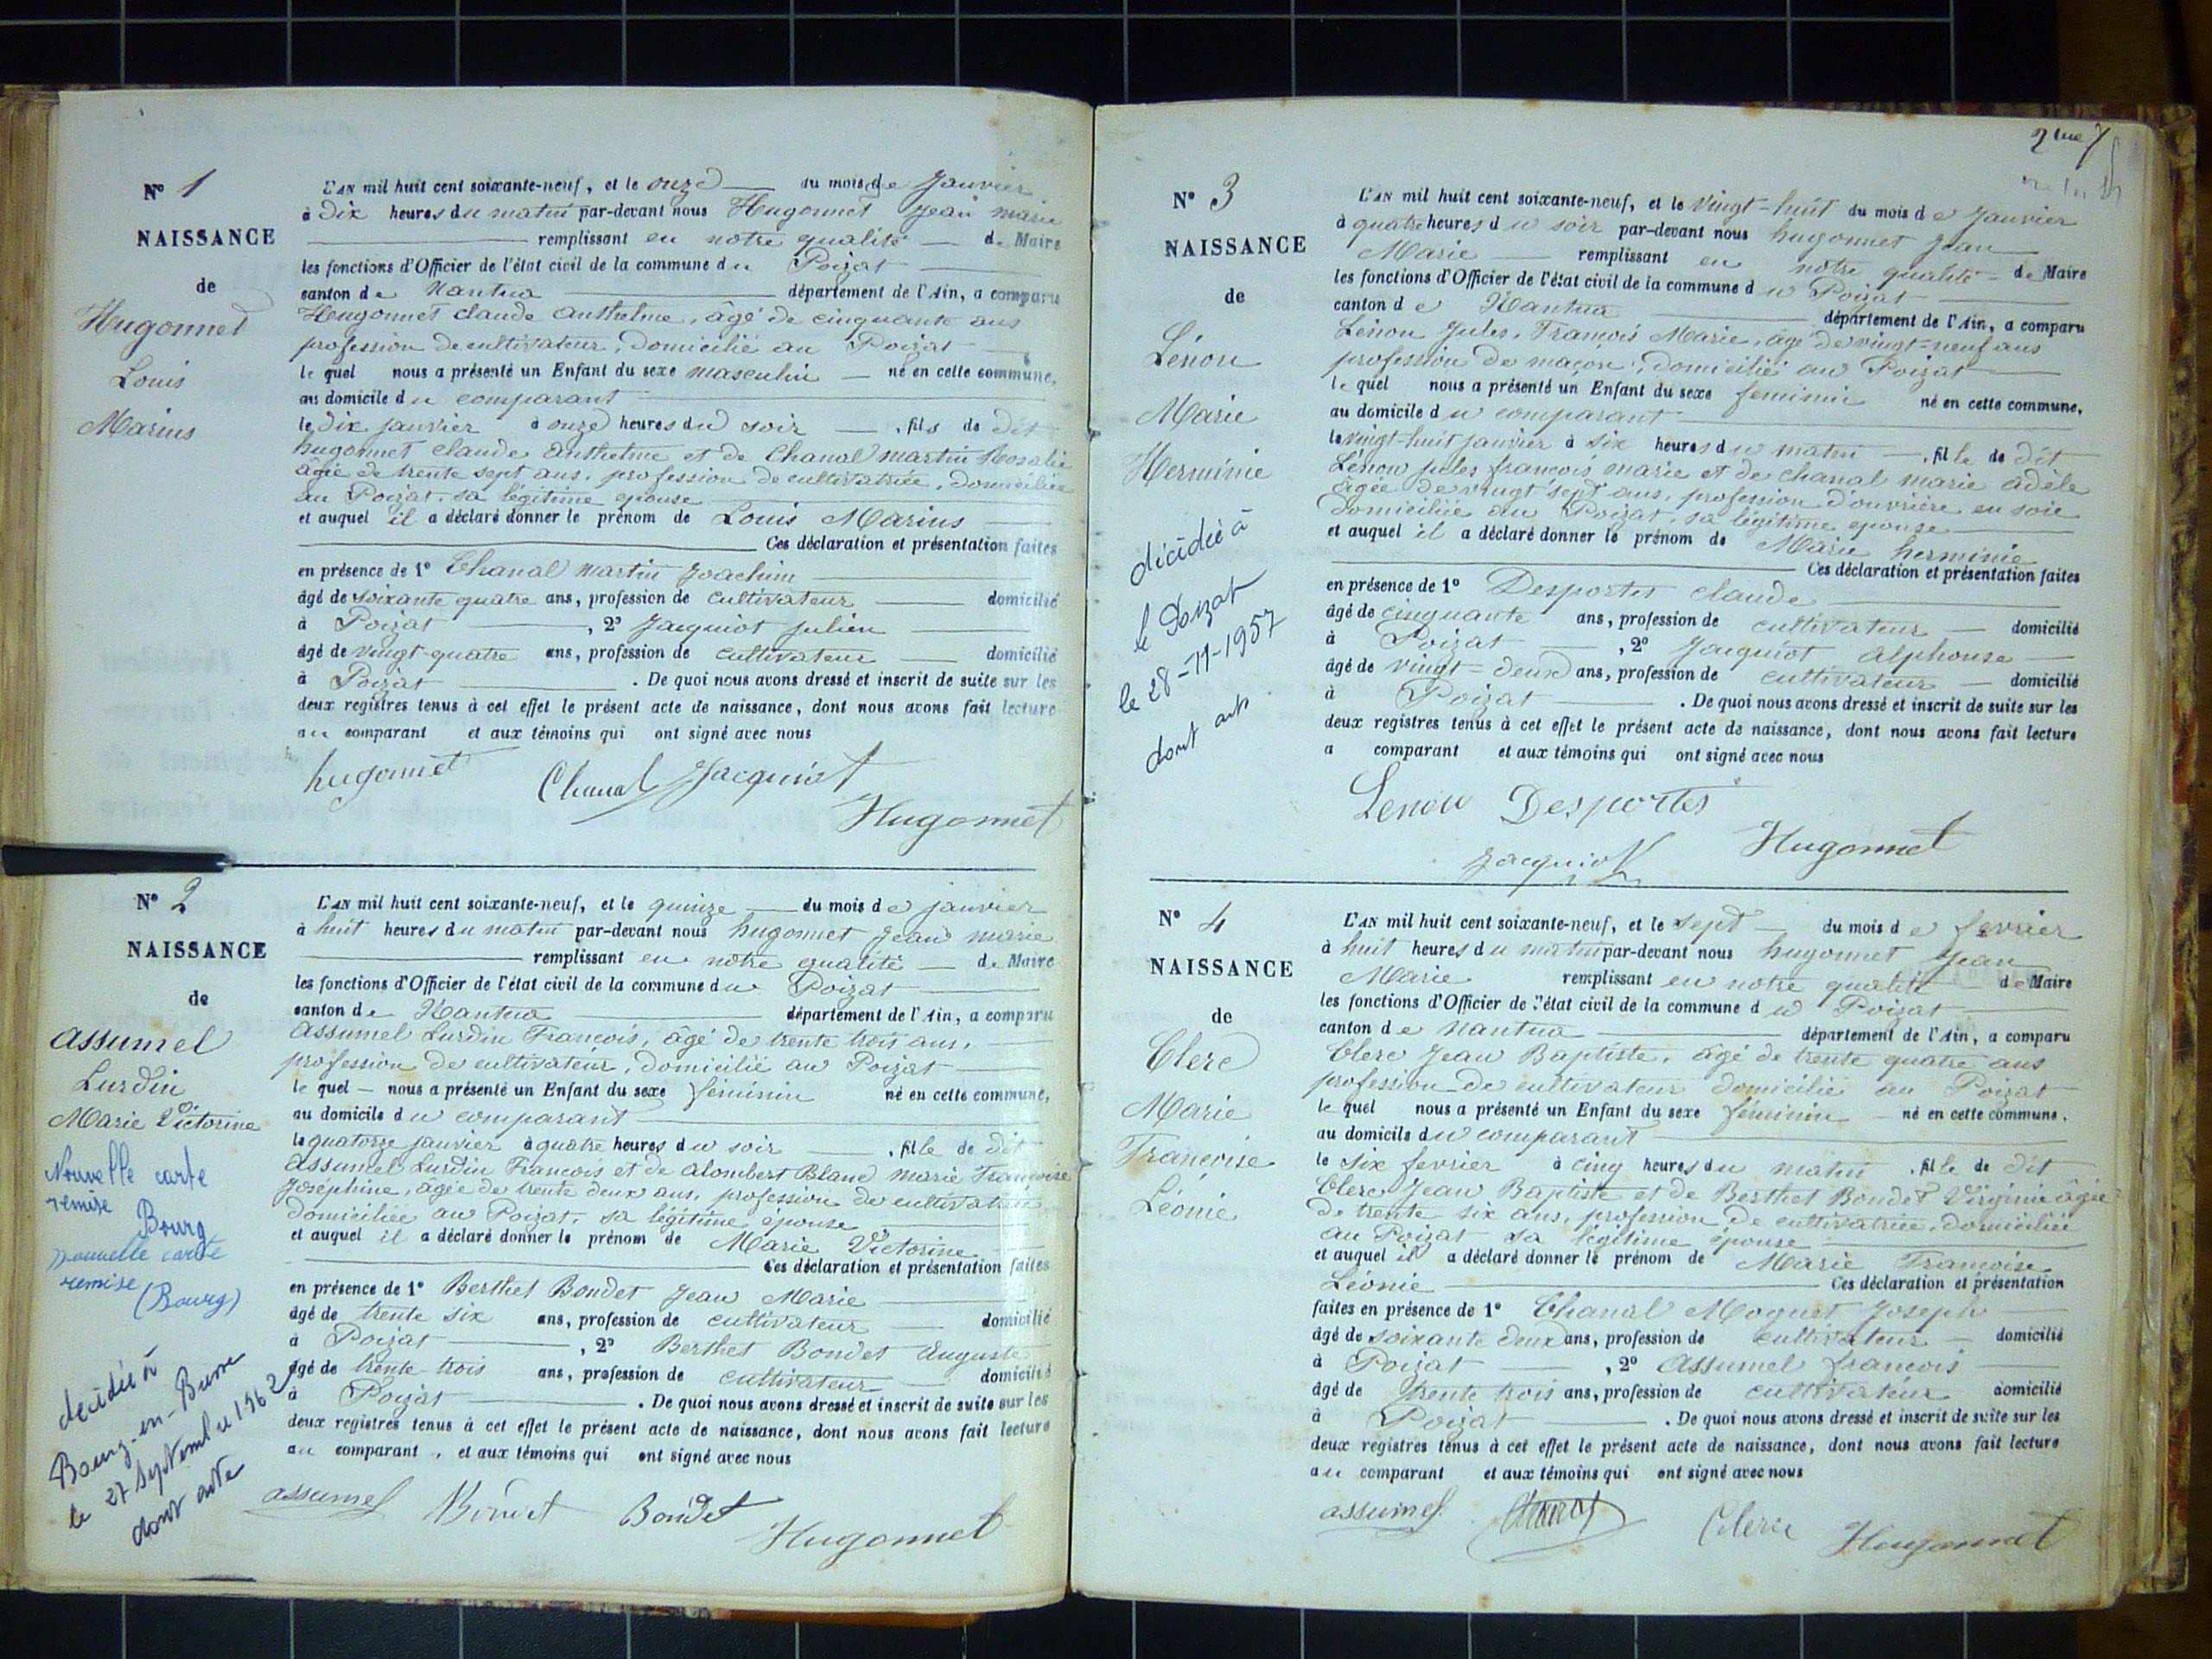 Nº 1
NAISSANCE
de
Hugonnet
Louis
Marius
L'AN mil huit cent soixante-neuf, et le onze du mois de Janvier
à Dix heures du matin par-devant nous Hugonnet Jean marie
remplissant en notre qualité de Maire
les fonctions d'Officier de l'état civil de la commune du Poizat
canton de Nantua département de l'Ain, a comparu
Hugonnet claude anthelme, âgé de cinquante ans
profession de cultivateur, domicilié au Poizat
le quel nous a présenté un Enfant du sexe masculin né en cette commune,
au domicile du comparant
le dix janvier à onze heures du soir, fils de dit
hugonnet claude anthelme et de Chanal martin Rosalie
âgée de trente sept ans, profession de cultivatrice, domiciliée
au Poizat, sa légitime épouse
et auquel il a déclaré donner le prénom de Louis Marius
Ces déclaration et présentation faites
en présence de 1º Chanal Martin Joachim
âgé de soixante quatre ans, profession de cultivateur domicilié
à Poizat, 2º Jacquiot julien
âgé de vingt-quatre ans, profession de cultivateur domicilié
à Poizat. De quoi nous avons dressé et inscrit de suite sur les
deux registres tenus à cet effet le présent acte de naissance, dont nous avons fait lecture
au comparant et aux témoins qui ont signé avec nous
hugonnet Chanal Jacquiot
Hugonnet
Nº 2
NAISSANCE
de
assumel
Lurdin
Marie Victorine
Nouvelle carte
remise
Bourg
nouvelle carte
remise
(Bourg)
décédée à
Bourg-en-Bresse
le 27 septembre 1962
dont acte
L'AN mil huit cent soixante-neuf, et le quinze du mois de janvier
à huit heures du matin par-devant nous hugonnet Jean marie
remplissant en notre qualité de Maire
les fonctions d'Officier de l'état civil de la commune du Poizat
canton de Nantua département de l'Ain, a comparu
assumel Lurdin François, âgé de trente trois ans,
profession de cultivateur, domicilié au Poizat
le quel nous a présenté un Enfant du sexe féminin né en cette commune,
au domicile du comparant
le quatorze janvier à quatre heures du soir, fille de dit
assumel Lurdin François et de alombert Bland marie Françoise
Joséphine, âgée de trente deux ans, profession de cultivatrice
domiciliée au Poizat, sa légitime épouse
et auquel il a déclaré donner le prénom de Marie Victorine
Ces déclaration et présentation faites
en présence de 1º Berthet Bondet Jean Marie
âgé de trente six ans, profession de cultivateur domicilié
à Poizat, 2º Berthet Bondet Auguste
âgé de trente-trois ans, profession de cultivateur domicilié
à Poizat. De quoi nous avons dressé et inscrit de suite sur les
deux registres tenus à cet effet le présent acte de naissance, dont nous avons fait lecture
au comparant, et aux témoins qui ont signé avec nous
assumel Bondet Bondet
Hugonnet
2me
Nº 3
NAISSANCE
de
Lénon
Marie
Herminie
décédée à
le Poizat
le 28-11-1957
dont acte
L'AN mil huit cent soixante-neuf, et le vingt-huit du mois de Janvier
à quatre heures du soir par-devant nous hugonnet Jean
Marie remplissant en notre qualité de Maire
les fonctions d'Officier de l'état civil de la commune du Poizat
canton de Nantua département de l'Ain, a comparu
Lénon Jules, François Marie, âgé de vingt-neuf ans
profession de maçon, domicilié au Poizat
le quel nous a présenté un Enfant du sexe féminin né en cette commune,
au domicile du comparant
le vingt-huit janvier à six heures du matin, fille de dit
Lénon jules françois marie et de chanal marie adèle
âgée de vingt sept ans, profession d'ouvrière en soie
domiciliée au Poizat, sa légitime épouse
et auquel il a déclaré donner le prénom de Marie herminie
Ces déclaration et présentation faites
en présence de 1º Desportes claude
âgé de cinquante ans, profession de cultivateur domicilié
à Poizat, 2º Jacquiot alphonse
âgé de vingt-deux ans, profession de cultivateur domicilié
à Poizat. De quoi nous avons dressé et inscrit de suite sur les
deux registres tenus à cet effet le présent acte de naissance, dont nous avons fait lecture
a comparant et aux témoins qui ont signé avec nous
Lenon Desportes
Jacquiot Hugonnet
Nº 4
NAISSANCE
de
Clerc
Marie
Françoise
Léonie
L'AN mil huit cent soixante-neuf, et le sept du mois de fevrier
à huit heures du matin par-devant nous hugonnet Jean
Marie remplissant en notre qualité de Maire
les fonctions d'Officier de l'état civil de la commune du Poizat
canton de Nantua département de l'Ain, a comparu
Clerc Jean Baptiste, âgé de trente quatre ans
profession de cultivateur domicilié au Poizat
le quel nous a présenté un Enfant du sexe féminin né en cette commune,
au domicile du comparant
le six fevrier à cinq heures du matin, fille de dit
Clerc Jean Baptiste et de Berthet Bondet Virginie âgée
de trente six ans, profession de cultivatrice, domiciliée
au Poizat sa légitime épouse
et auquel il a déclaré donner le prénom de Marie Françoise
Léonie Ces déclaration et présentation
faites en présence de 1º Chanal Moquet Joseph
âgé de soixante deux ans, profession de cultivateur domicilié
à Poizat, 2º assumel françois
âgé de trente trois ans, profession de cultivateur domicilié
à Poizat. De quoi nous avons dressé et inscrit de suite sur les
deux registres tenus à cet effet le présent acte de naissance, dont nous avons fait lecture
au comparant et aux témoins qui ont signé avec nous
assumel Chanal Clerc Hugonnet